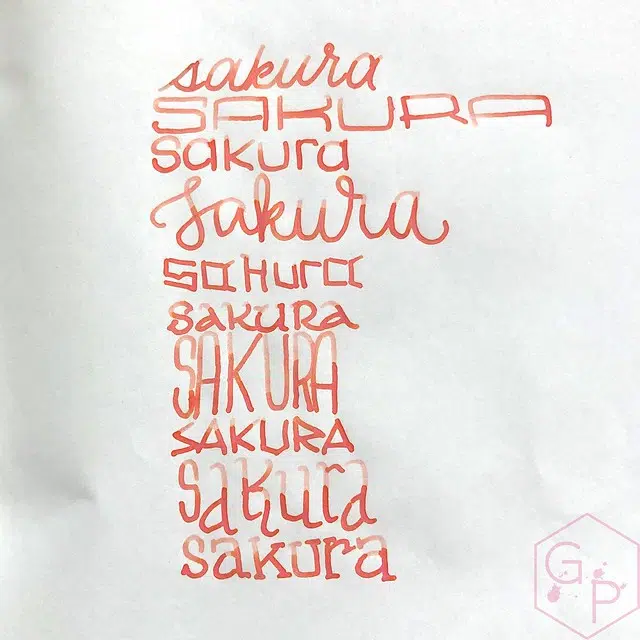 sakura
SAKURA
sakura
sakura
sakura
sakura
SAKURA
SAKURA
sakura
sakura
GP